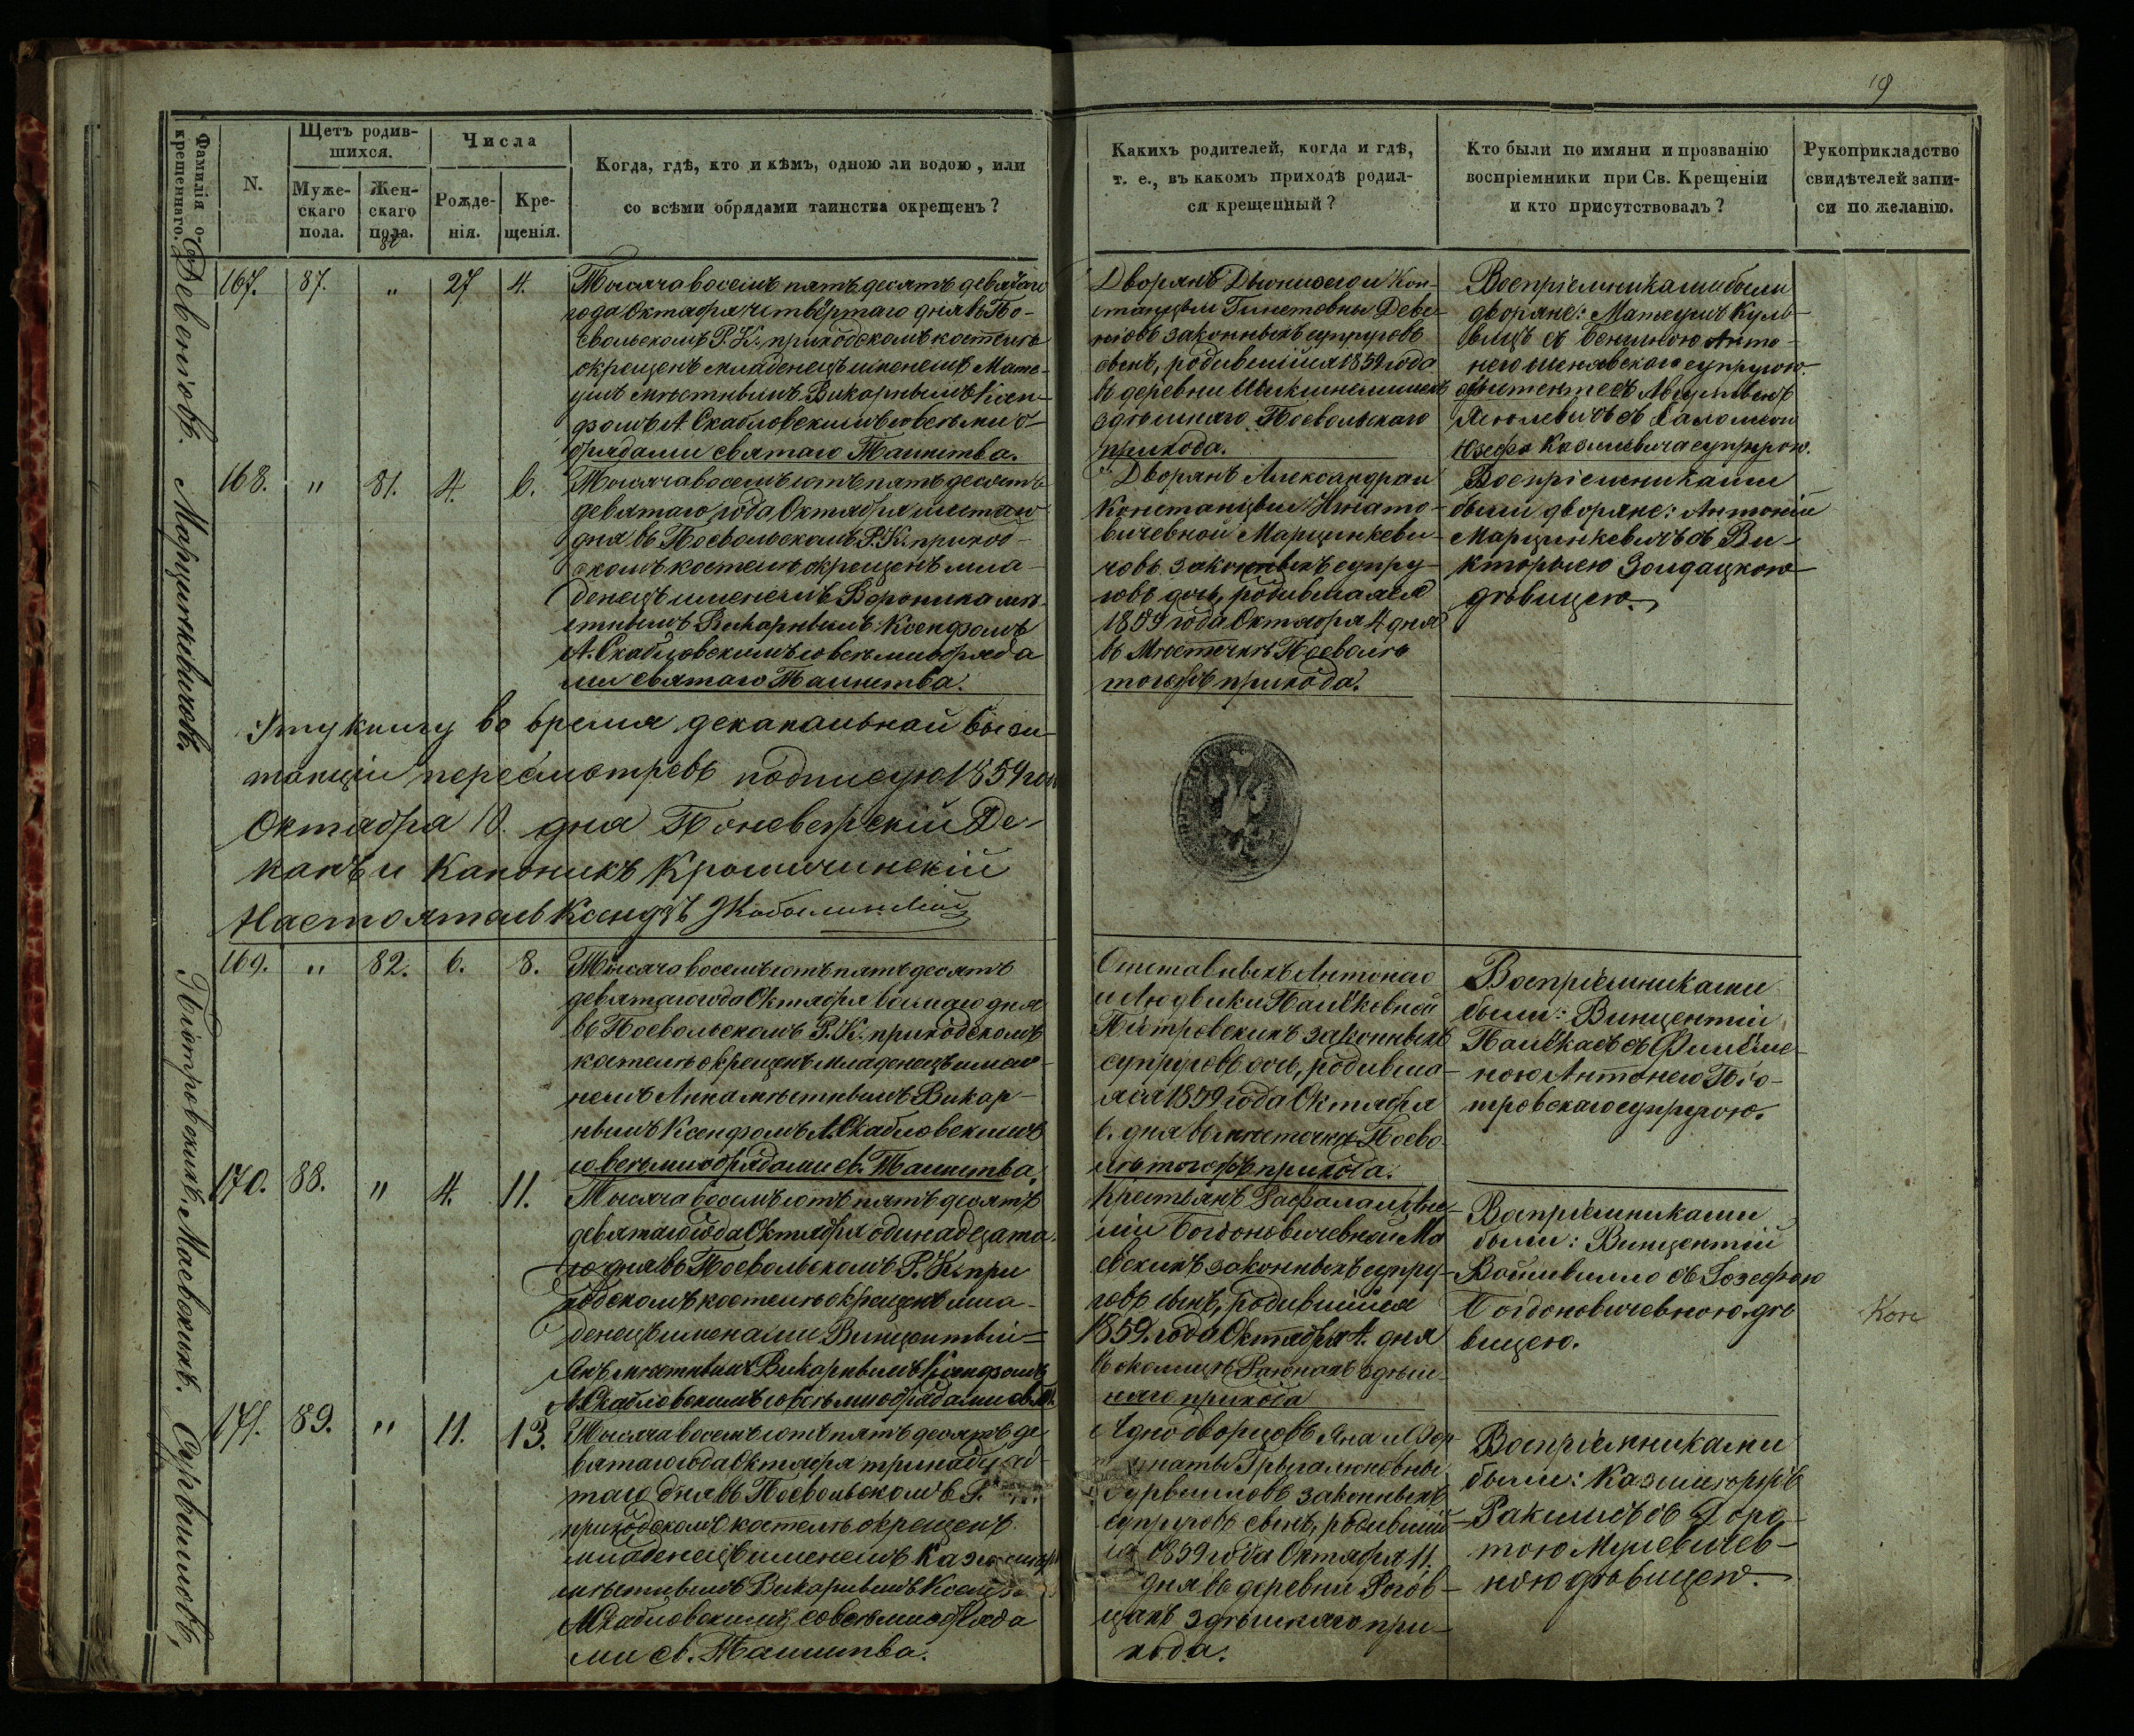 19
Фамилія о-
крещеннаго.
N.
Щетъ родив-
шихся.
Муже-
скаго
пола.
Жен-
скаго
пола.
Числа
Рожде-
нія.
Кре-
щенія.
Когда, гдѣ, кто и кѣмъ, одною ли водою, или
со всѣми обрядами таинства окрещенъ?
Какихъ родителей, когда и гдѣ,
т. е., въ какомъ приходѣ родил-
ся крещенный?
Кто были по имяни и прозванію
воспріемники при Св. Крещеніи
и кто присутствовалъ?
Рукоприкладство
свидѣтелей запи-
си по желанію.
Девеніовъ.
167. 87. " 27 4.
Тысяча восемъ пятъдесятъ девятаго
года Октября четвёртаго дня въ По-
евольскомъ Р. К. приходскомъ костелѣ
окрещенъ младенецъ именемъ Мате-
ушъ мѣстнымъ Викарнымъ Ксен-
дзомъ А. Скабловскимъ со всѣми о-
брядами святаго Таинства.
Дворянъ Діонисого и Кон-
станціи Гинетовны Деве-
ніовъ законныхъ супруговъ
сынъ, родившійся 1859 года
въ деревни
здѣшняго Поевольскаго
прихода.
Воспріемниками были
дворяне: Матеушъ Куль-
вицъ съ Бенигною Анто-
него супругою.
Августынъ
съ Саломеей
Юзефа супругою.
Марцинкевичовъ.
168. " 81. 4. 6.
Тысяча восемъ сотъ пятъдесятъ
девятаго года Октября шестаго
дня въ Поевольскомъ Р. К. приход-
скомъ костелѣ окрещенъ мла-
денецъ именемъ Вероника мѣ-
стнымъ Викарнымъ Ксендзомъ
А. Скабловскимъ со всѣми обряда
ми святаго Таинства.
Дворянъ Александра и
Констанціи Игнато-
вичевной Марцинкеви-
човъ законныхъ супру-
говъ дочь, родившаяся
1859 года Октября 4 дня
въ Мѣстечкѣ Поеволѣ
тогожъ прихода.
Воспріемниками
были дворяне: Антоній
Марцинкевичъ съ Ви-
кторыею Золдацкою
дѣвицею.
Эту книгу во время деканальной визи-
тацціи пересмотревъ подписую 1859 года
Октября 10. дня Поневежскій Де-
канъ и Каноникъ Кромчинскій
Настоятель Ксендзъ
Піотровскихъ.
169. " 82. 6. 8.
Тысяча восемъ сотъ пятъдесятъ
девятаго года Октября восмаго дня
въ Поевольскомъ Р. К. приходскомъ
костелѣ окрещенъ младенецъ име-
немъ Анна мѣстнымъ Викар-
нымъ Ксендзомъ А. Скабловскимъ
со всѣми обрядами св. Таинства.
Отставныхъ Антонего
и Людвики
Піотровскихъ законныхъ
супруговъ дочь, родивша-
яся 1859 года Октября
6. дня въ мѣстечкѣ Поево-
лѣ тогожъ прихода.
Воспріемниками
были: Винцентій
съ
ною Антонего Піо-
тровскаго супругою.
Маевскихъ.
170. 88. " 4. 11.
Тысяча восемъ сотъ пятъдесятъ
девятаго года Октября одинадцата-
го дня въ Поевольскомъ Р. К. при
ходскомъ костелѣ окрещенъ мла-
денецъ именами Винцентый=
Янъ мѣстнымъ Викарнымъ Ксендзомъ
А. Скабловскимъ со всѣми обрядами св. Т.
Крестьянъ Рафала и
Богдоновичевной Ма
евскихъ законныхъ супру-
говъ сынъ, родившійся
1859. года Октября 4. дня
въ околицѣ здѣш-
няго прихода
Воспріемниками
были: Винцентій
Войшвилло съ Іозефою
Богдоновичевною дѣ
вицею.
Кон
Сурвилловъ,
171. 89. " 11. 13.
Тысяча восемъ сотъ пятъдесятъ де
вятаго года Октября тринадцá-
таго дня въ Поевольскомъ Р.
приходскомъ костелѣ окрещенъ
младенецъ именемъ Казимиръ
мѣстнымъ Викарнымъ Ксендзо
А. Скабловскимъ со всѣми обряда
ми св. Таинства.
Однодворцовъ Яна и
Грыгалюновны
Сурвилловъ законныхъ
супруговъ сынъ, родившій-
ся 1859 года Октября 11.
дня въ деревни Рогов-
цахъ здѣшняго при-
хода.
Воспріемниками
были: Казимержъ
съ Доро-
тою
ною дѣвицею.